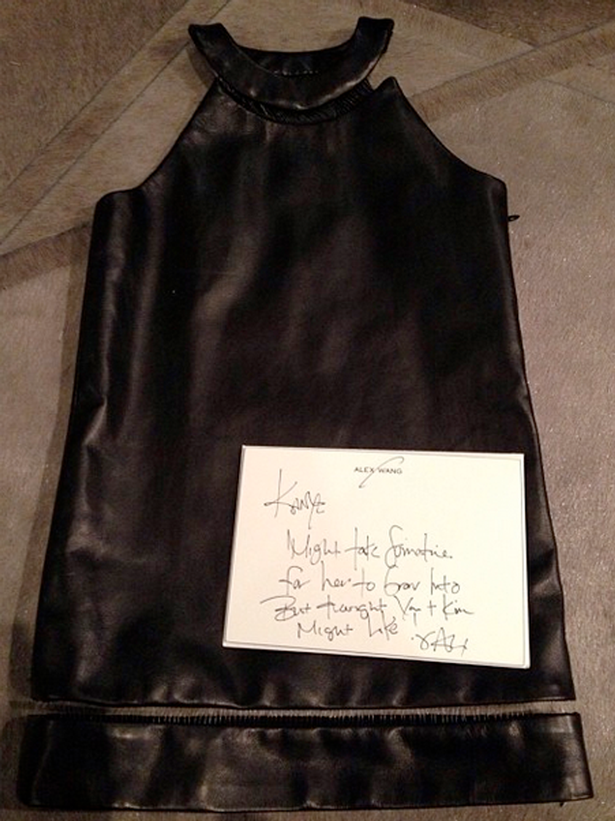 ALEX WANG
Kanye
Might take Sometime
for her to Grow Into
But thought You + Kim
Might Like. xAlx